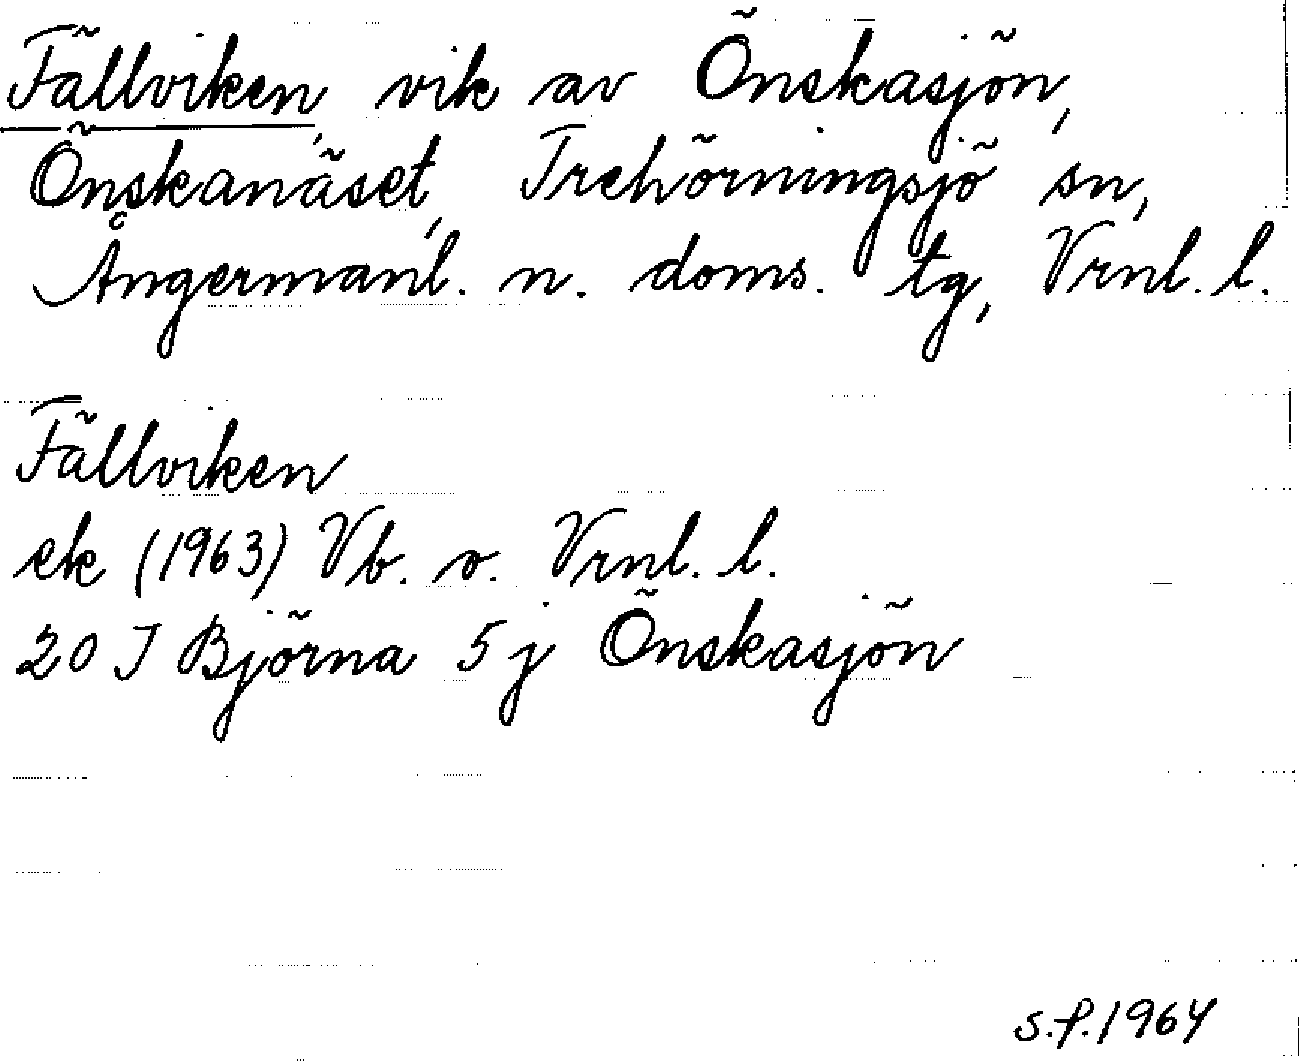 Fällviken, vik av Önskasjön,
Önskanäset, Trehörningsjö sn,
Ångermanl. n. doms. tg, Vrnl. l.
Fällviken
ek (1963) Vb. o. Vrnl. l.
20 I Björna 5 j Önskasjön
s.f. 1964